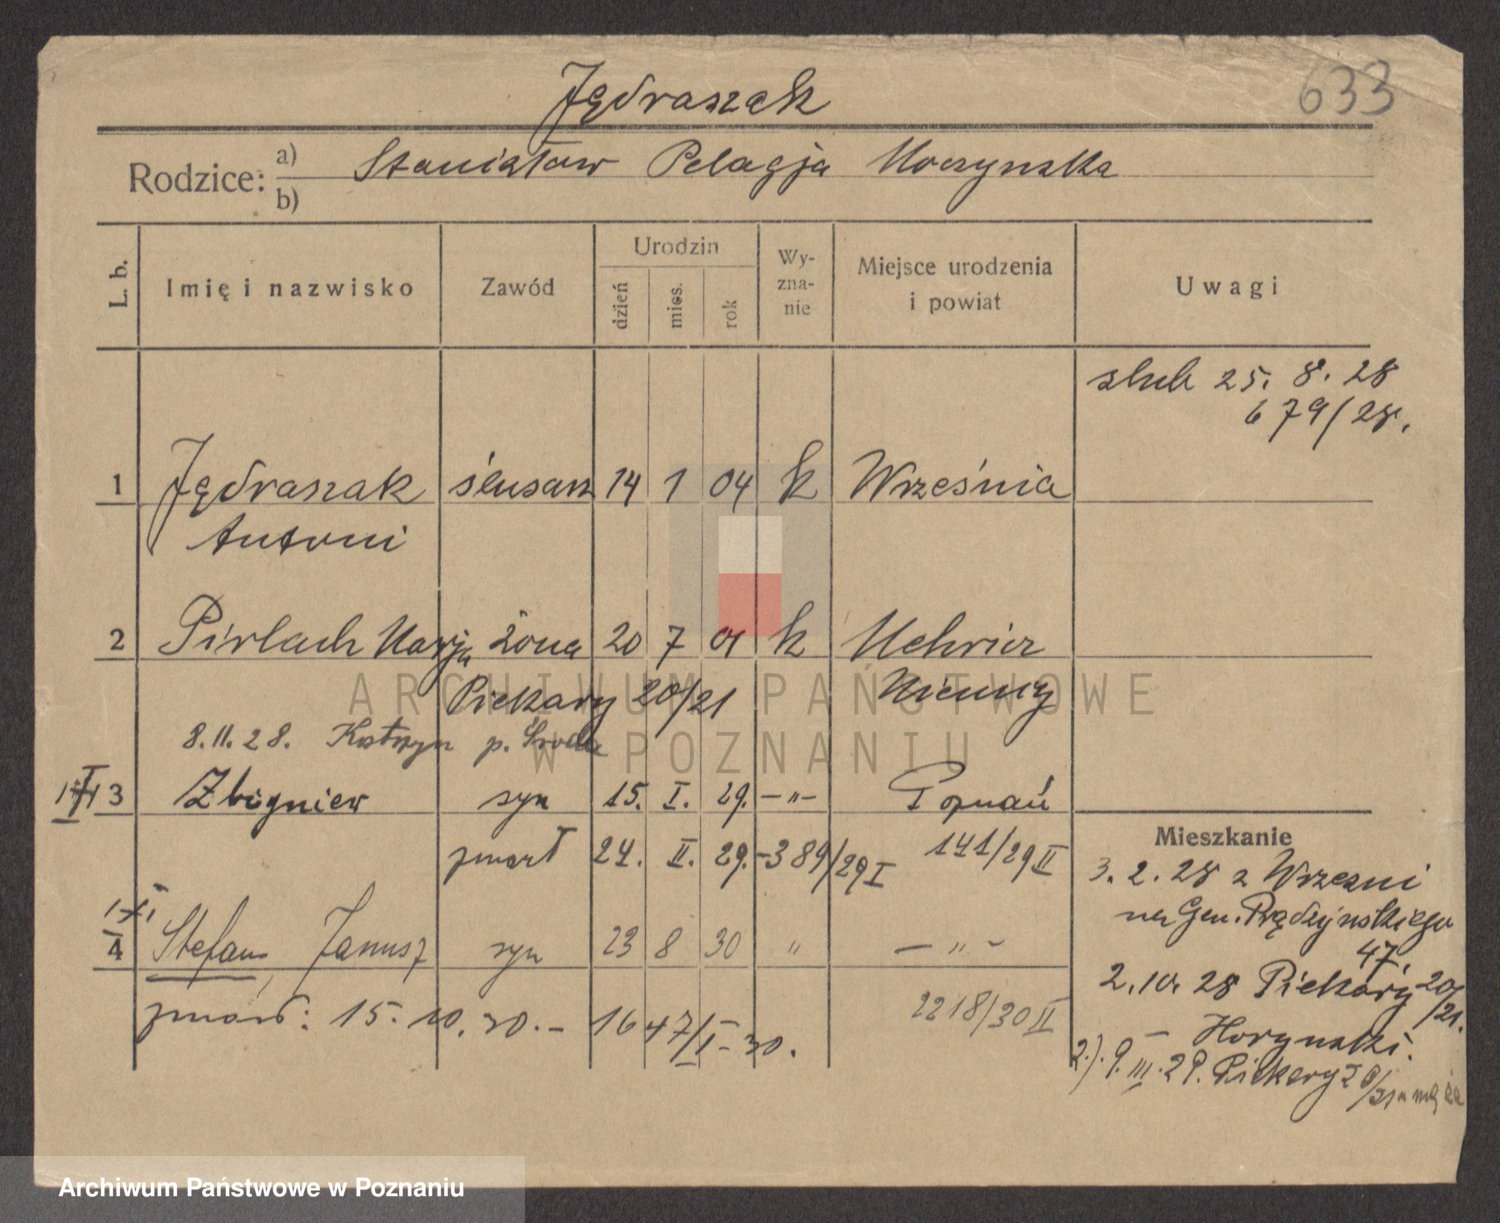 633
Jędraszak
Rodzice: a) Stanisław Pelagja Moczyńska
b)
L. b.
Imię i nazwisko
Zawód
Urodzin
dzień
mies.
rok
Wy-
zna-
nie
Miejsce urodzenia
i powiat
Uwagi
slub 25. 8. 28
679/28.
1 Jędraszak ślusarz 14 1 04 k Września
Antoni
2 Pirlach Marja żona 20 7 01 k
Piekary 20/21 Niemcy
8.11.28. p. Środa
3 Zbigniew syn 15. I. 29. —"— Poznań
zmarł 24. II. 29. – 389/29 I 141/29 II
4 Stefan, Janusz syn 23 8 30 " — " –
zmarł: 15. 10. 30. – 1647/I – 30. 2218/30 II
Mieszkanie
3. 2. 28 z Wrzesni
na Gen. Prądzyńskiego
47.
2. 10. 28 Piekary 20/21.
2.). 9. III. 29. Piekary
ARCHIWUM PAŃSTWOWE
W POZNANIU
Archiwum Państwowe w Poznaniu